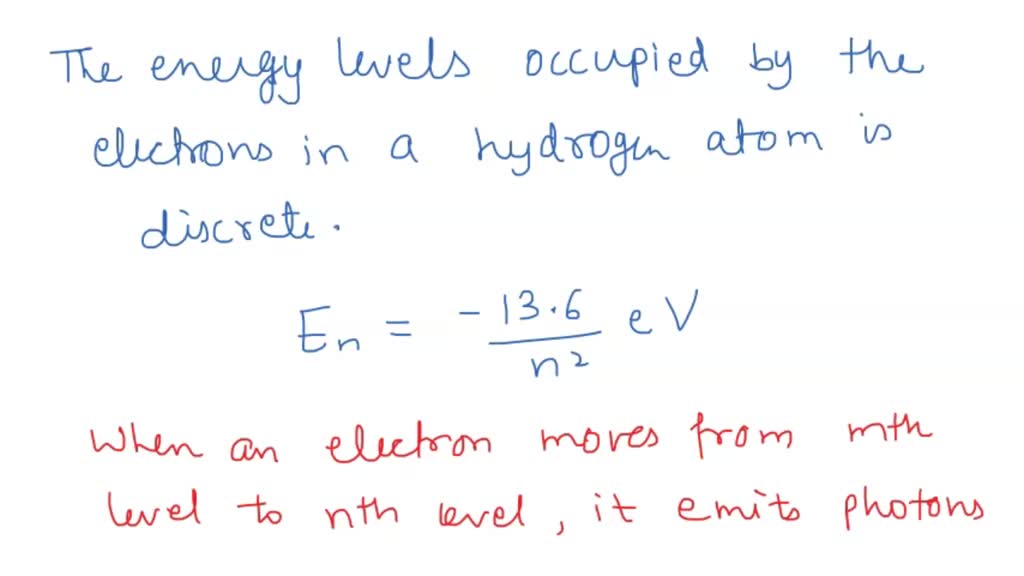 The energy levels occupied by the
electrons in a hydrogen atom is
discrete.
En = -13.6/n² eV
When an electron moves from mth
level to nth level, it emits photons